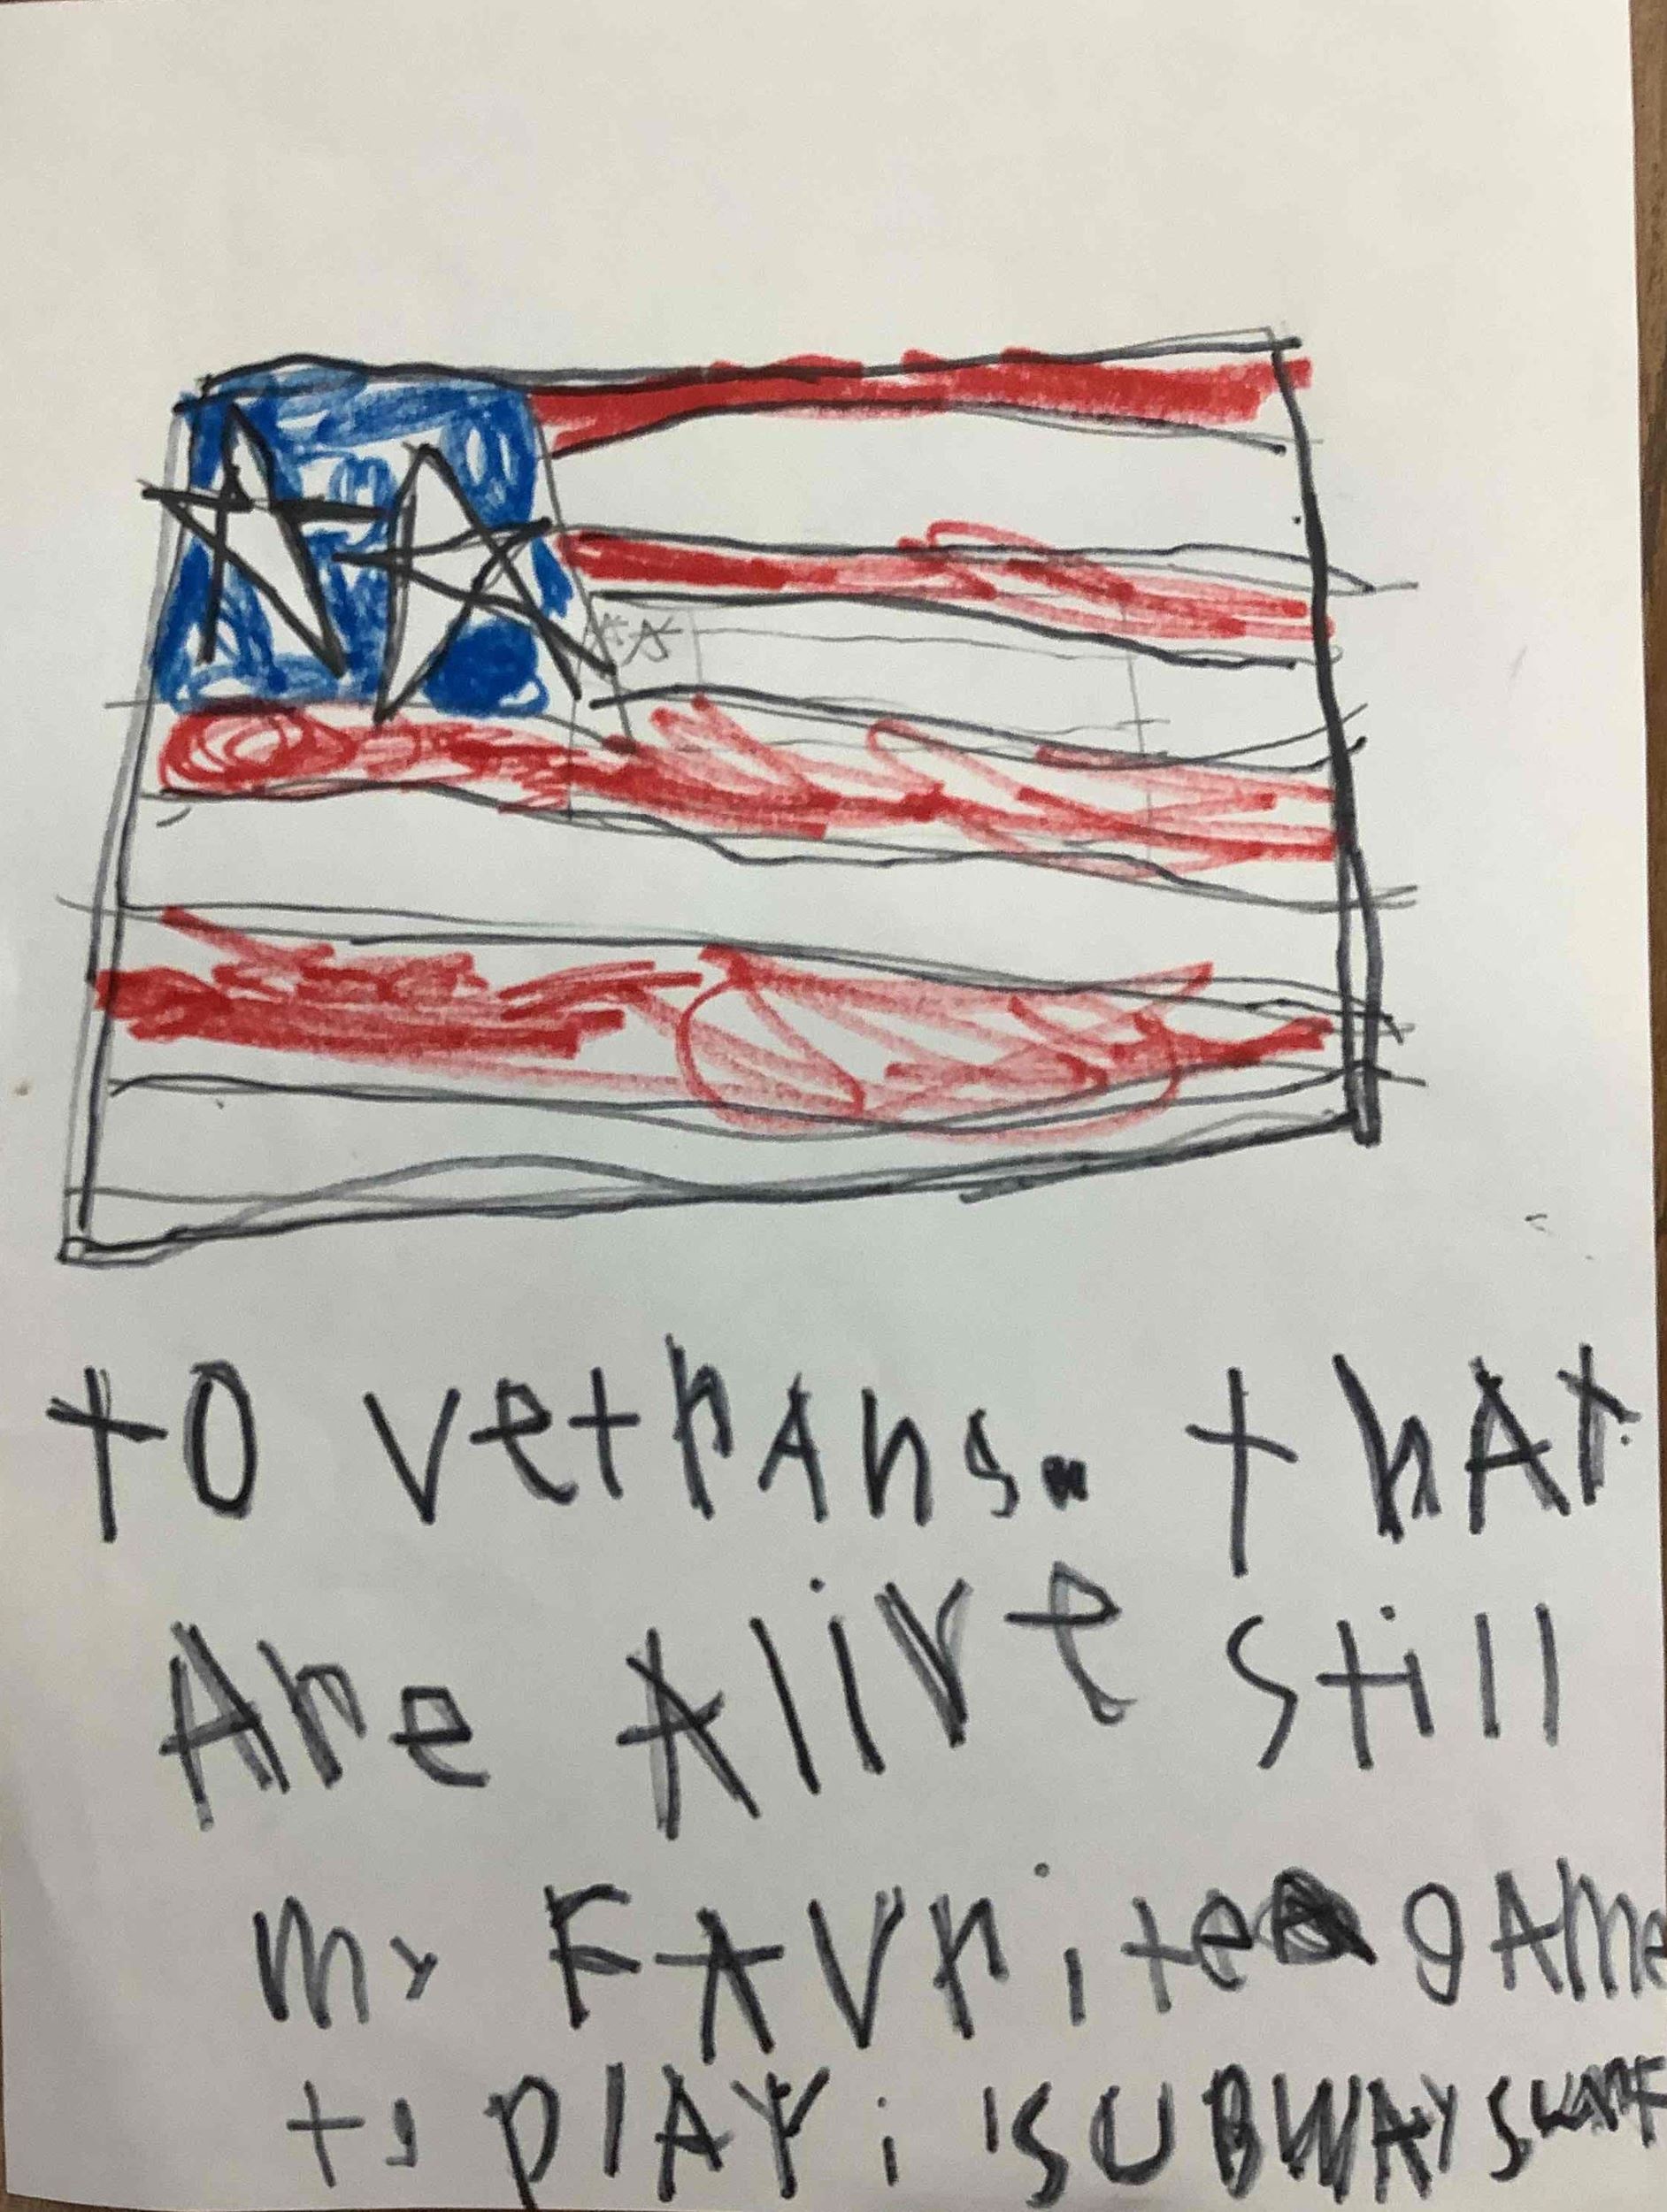 to vetrans. that
Are Alive still
my FAvrite game
to plAy is SUBWAY Surf